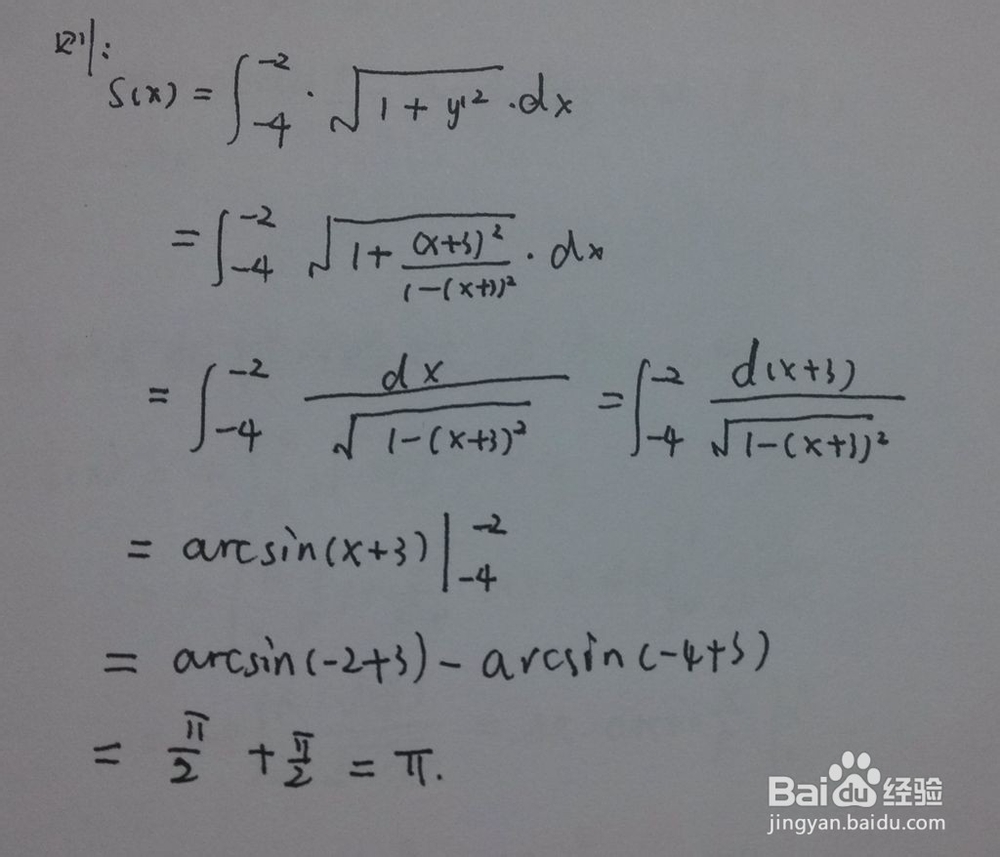 则:
S(x) = ∫_{-4}^{-2} · √(1 + y'²) · dx
= ∫_{-4}^{-2} √(1 + (x+3)²/(1-(x+3)²)) · dx
= ∫_{-4}^{-2} dx/√(1-(x+3)²) = ∫_{-4}^{-2} d(x+3)/√(1-(x+3)²)
= arcsin(x+3) |_{-4}^{-2}
= arcsin(-2+3) - arcsin(-4+3)
= π/2 + π/2 = π.
Baidu经验
jingyan.baidu.com